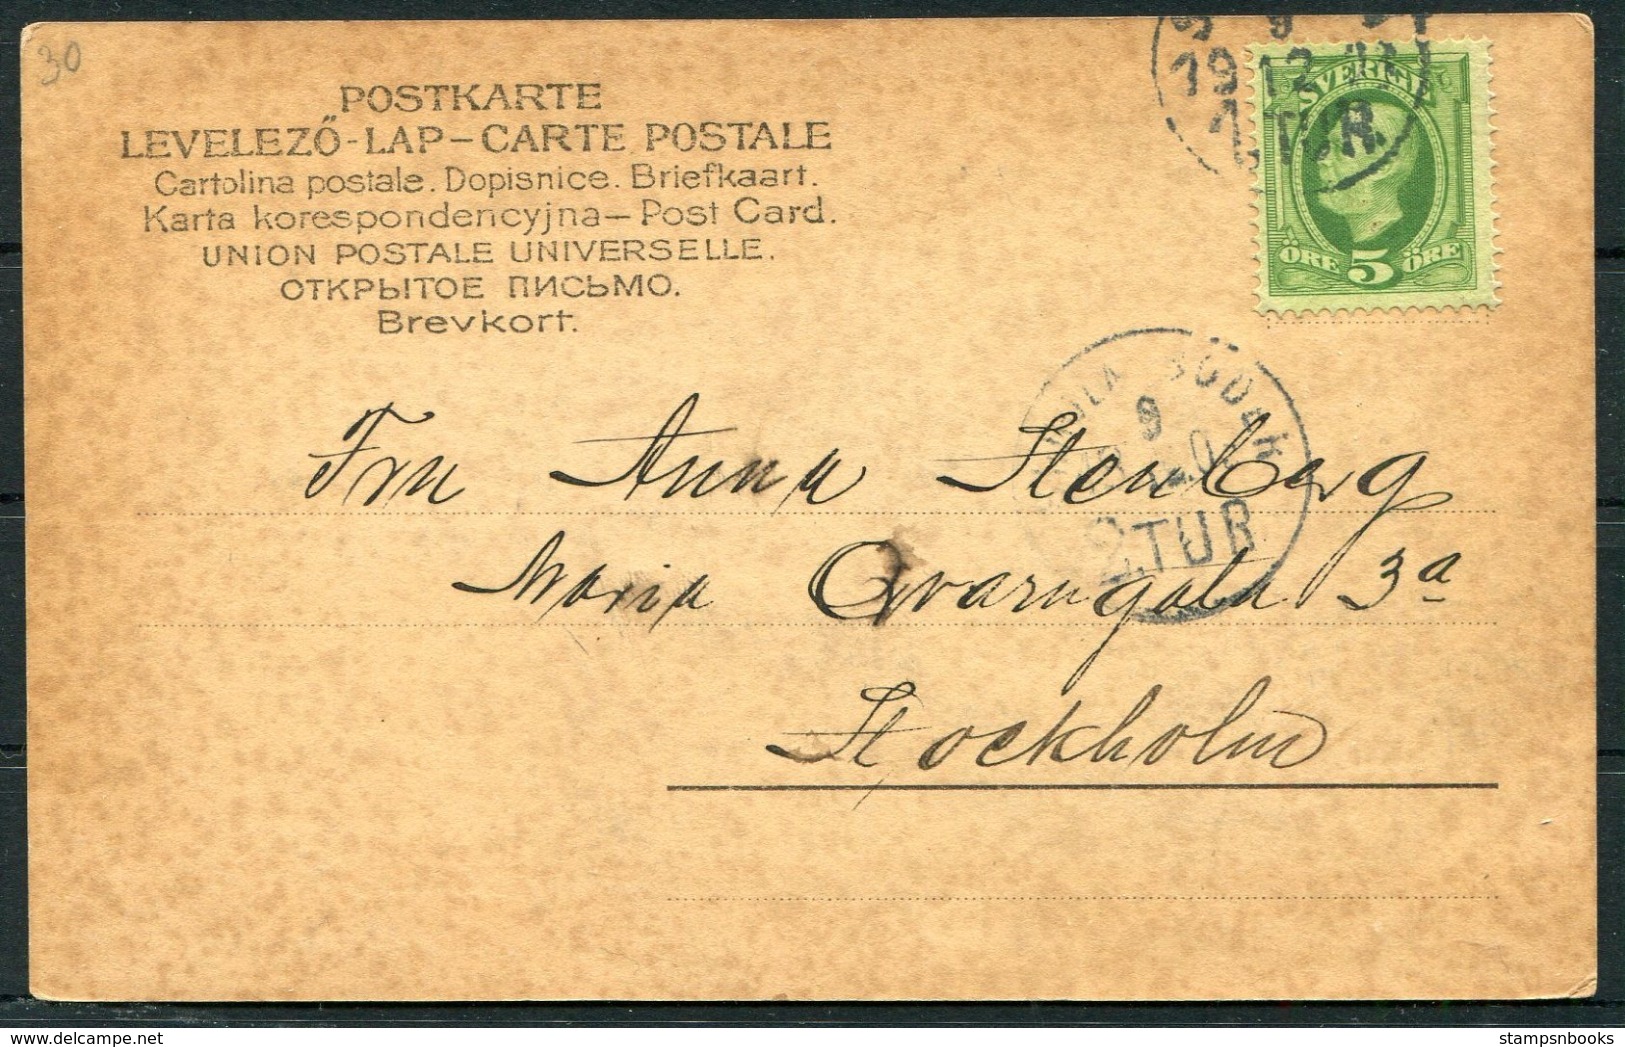 30
POSTKARTE
LEVELEZŐ-LAP-CARTE POSTALE
Cartolina postale. Dopisnice. Briefkaart.
Karta korespondencyjna-Post Card.
UNION POSTALE UNIVERSELLE.
ОТКРЫТОЕ ПИСЬМО.
Brevkort.
19 12
1. TUR.
SVERIGE
ÖRE 5 ÖRE
9
2. TUR
Fru Anna Stenberg
Maria Qvarngata 3a
Stockholm
stampsnbooks
www.delcampe.net